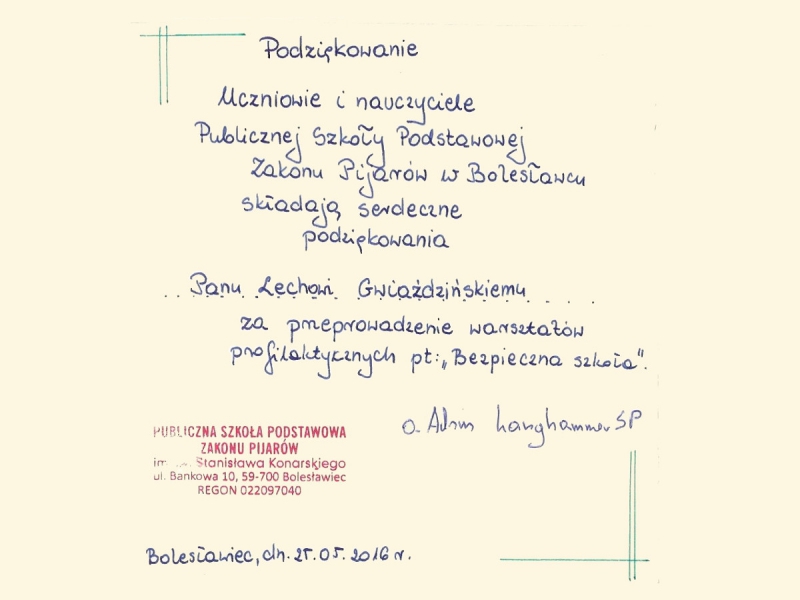 Podziękowanie
Uczniowie i nauczyciele
Publicznej Szkoły Podstawowej
Zakonu Pijarów w Bolesławcu
składają serdeczne
podziękowania
Panu Lechowi Gwiaździńskiemu
za przeprowadzenie warsztatów
profilaktycznych pt: „Bezpieczna szkoła".
o. Adam Langhammer SP
PUBLICZNA SZKOŁA PODSTAWOWA
ZAKONU PIJARÓW
im. Stanisława Konarskiego
ul. Bankowa 10, 59-700 Bolesławiec
REGON 022097040
Bolesławiec, dn. 25.05.2016 r.